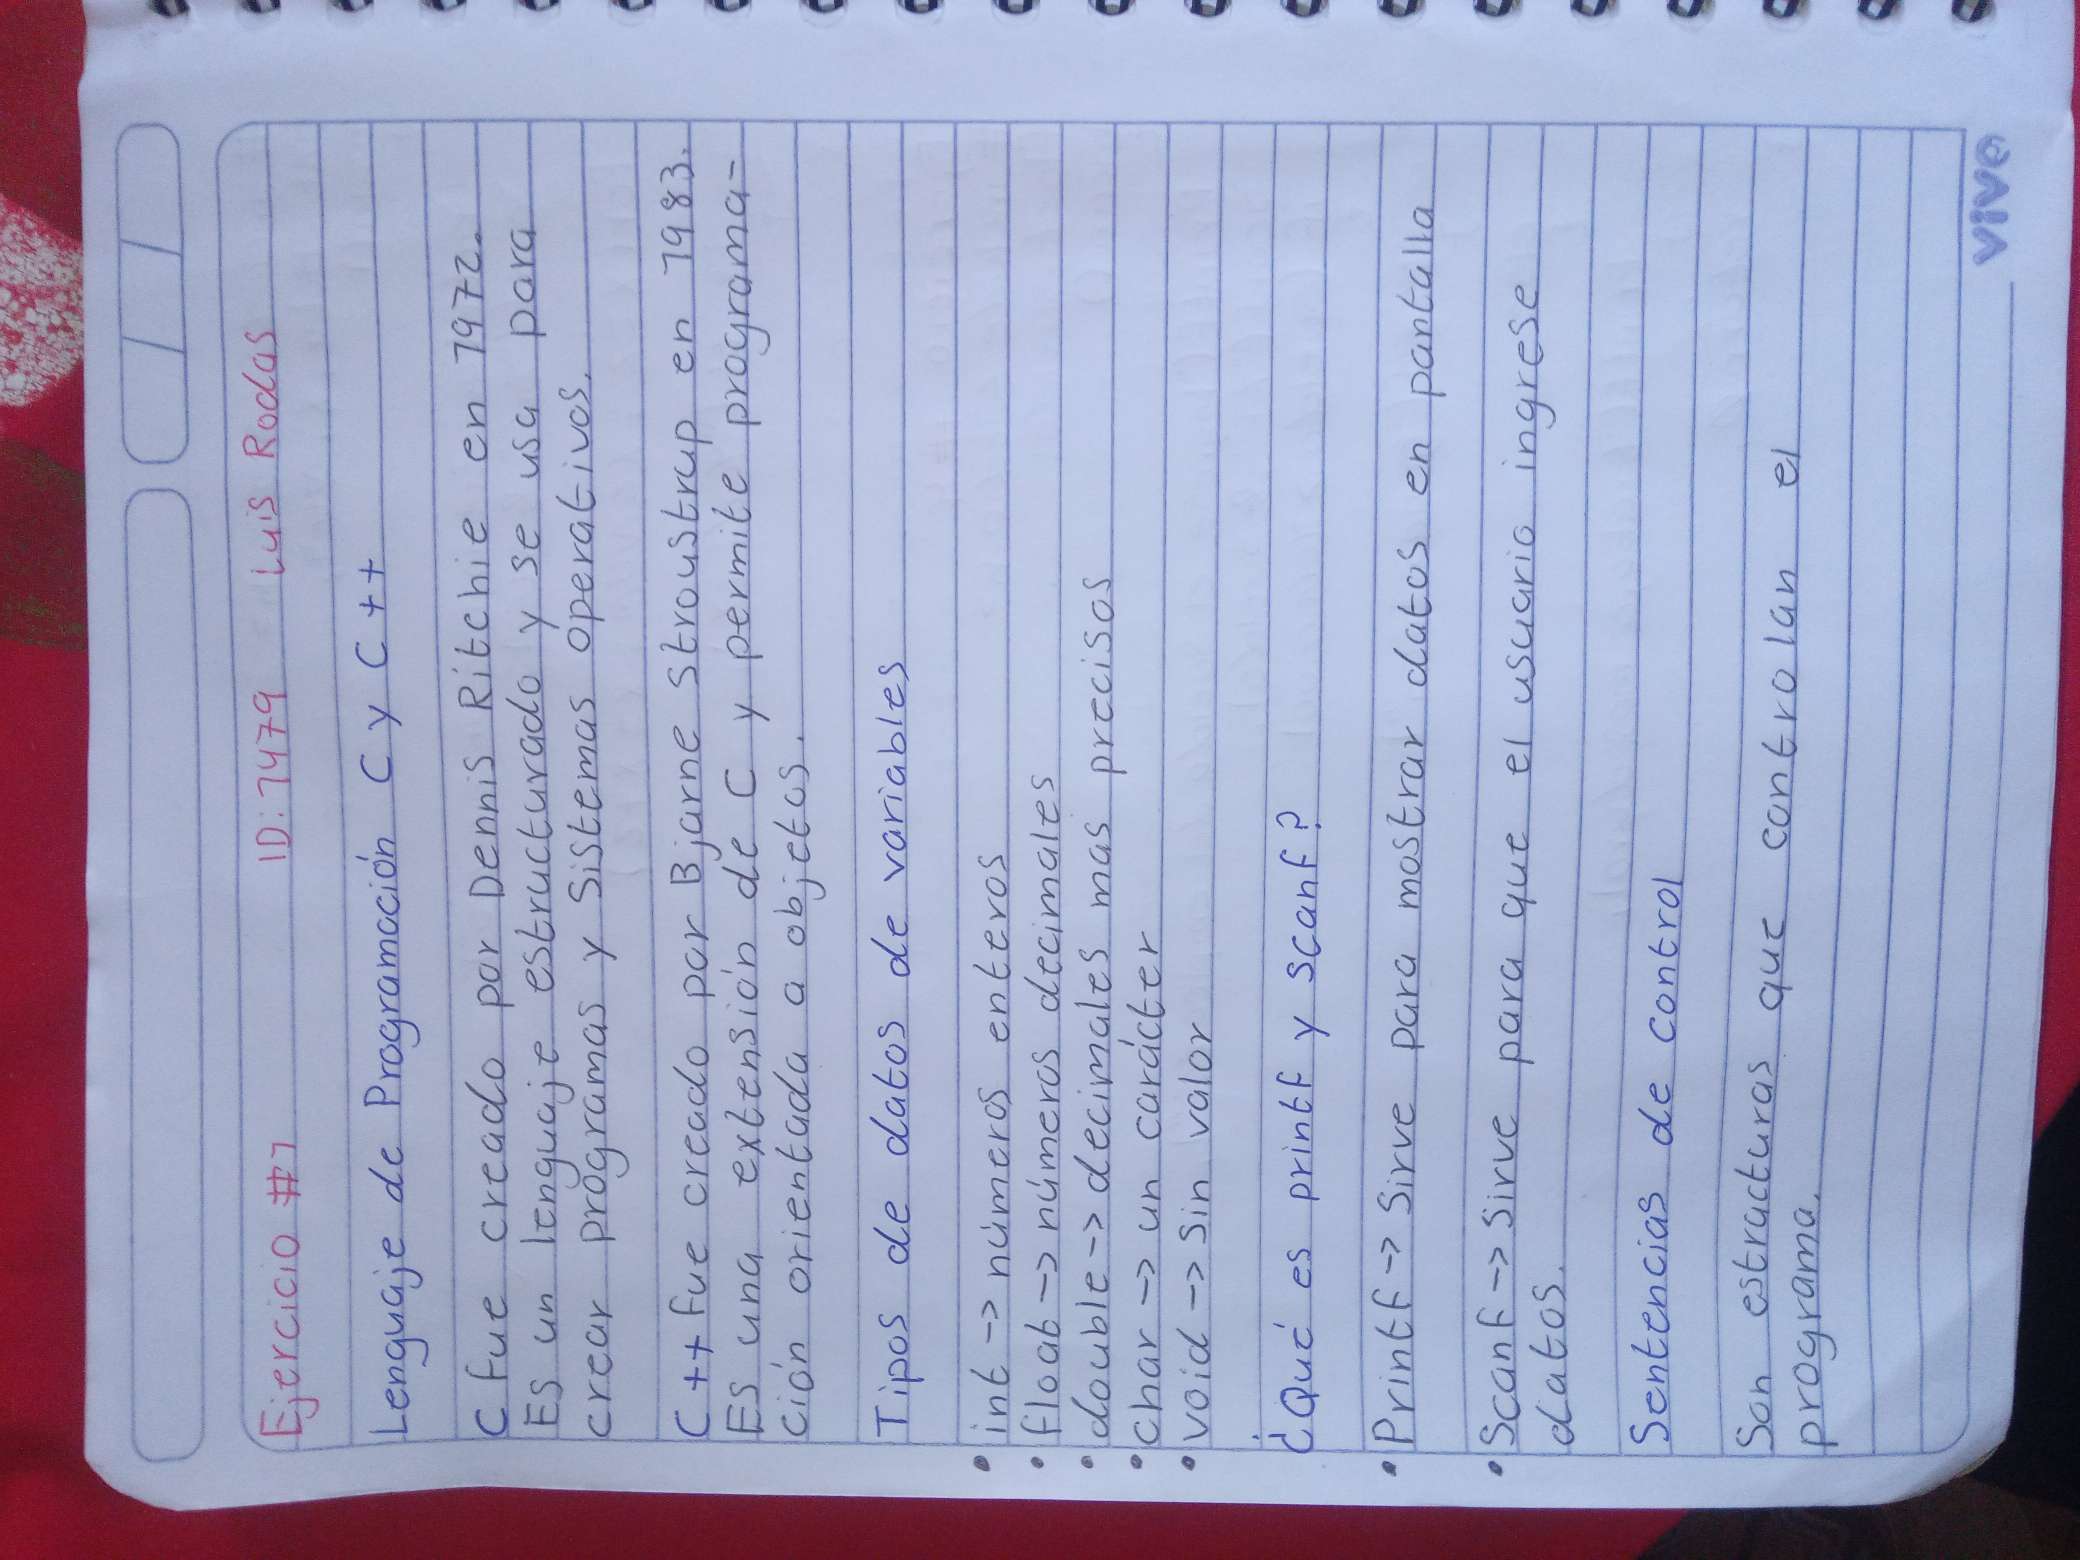 Ejercicio #1 ID: 1479 Luis Rodas
Lenguaje de Programación C y C++
C fue creado por Dennis Ritchie en 1972.
Es un lenguaje estructurado y se usa para
crear programas y sistemas operativos.
C++ fue creado por Bjarne Stroustrup en 1983.
Es una extensión de C y permite programa-
ción orientada a objetos.
Tipos de datos de variables
• int -> números enteros
• float -> números decimales
• double -> decimales mas precisos
• char -> un carácter
• void -> sin valor
¿Qué es printf y scanf?
• Printf -> Sirve para mostrar datos en pantalla
• Scanf -> Sirve para que el usuario ingrese
datos.
Sentencias de control
Son estructuras que controlan el
programa.
vivo